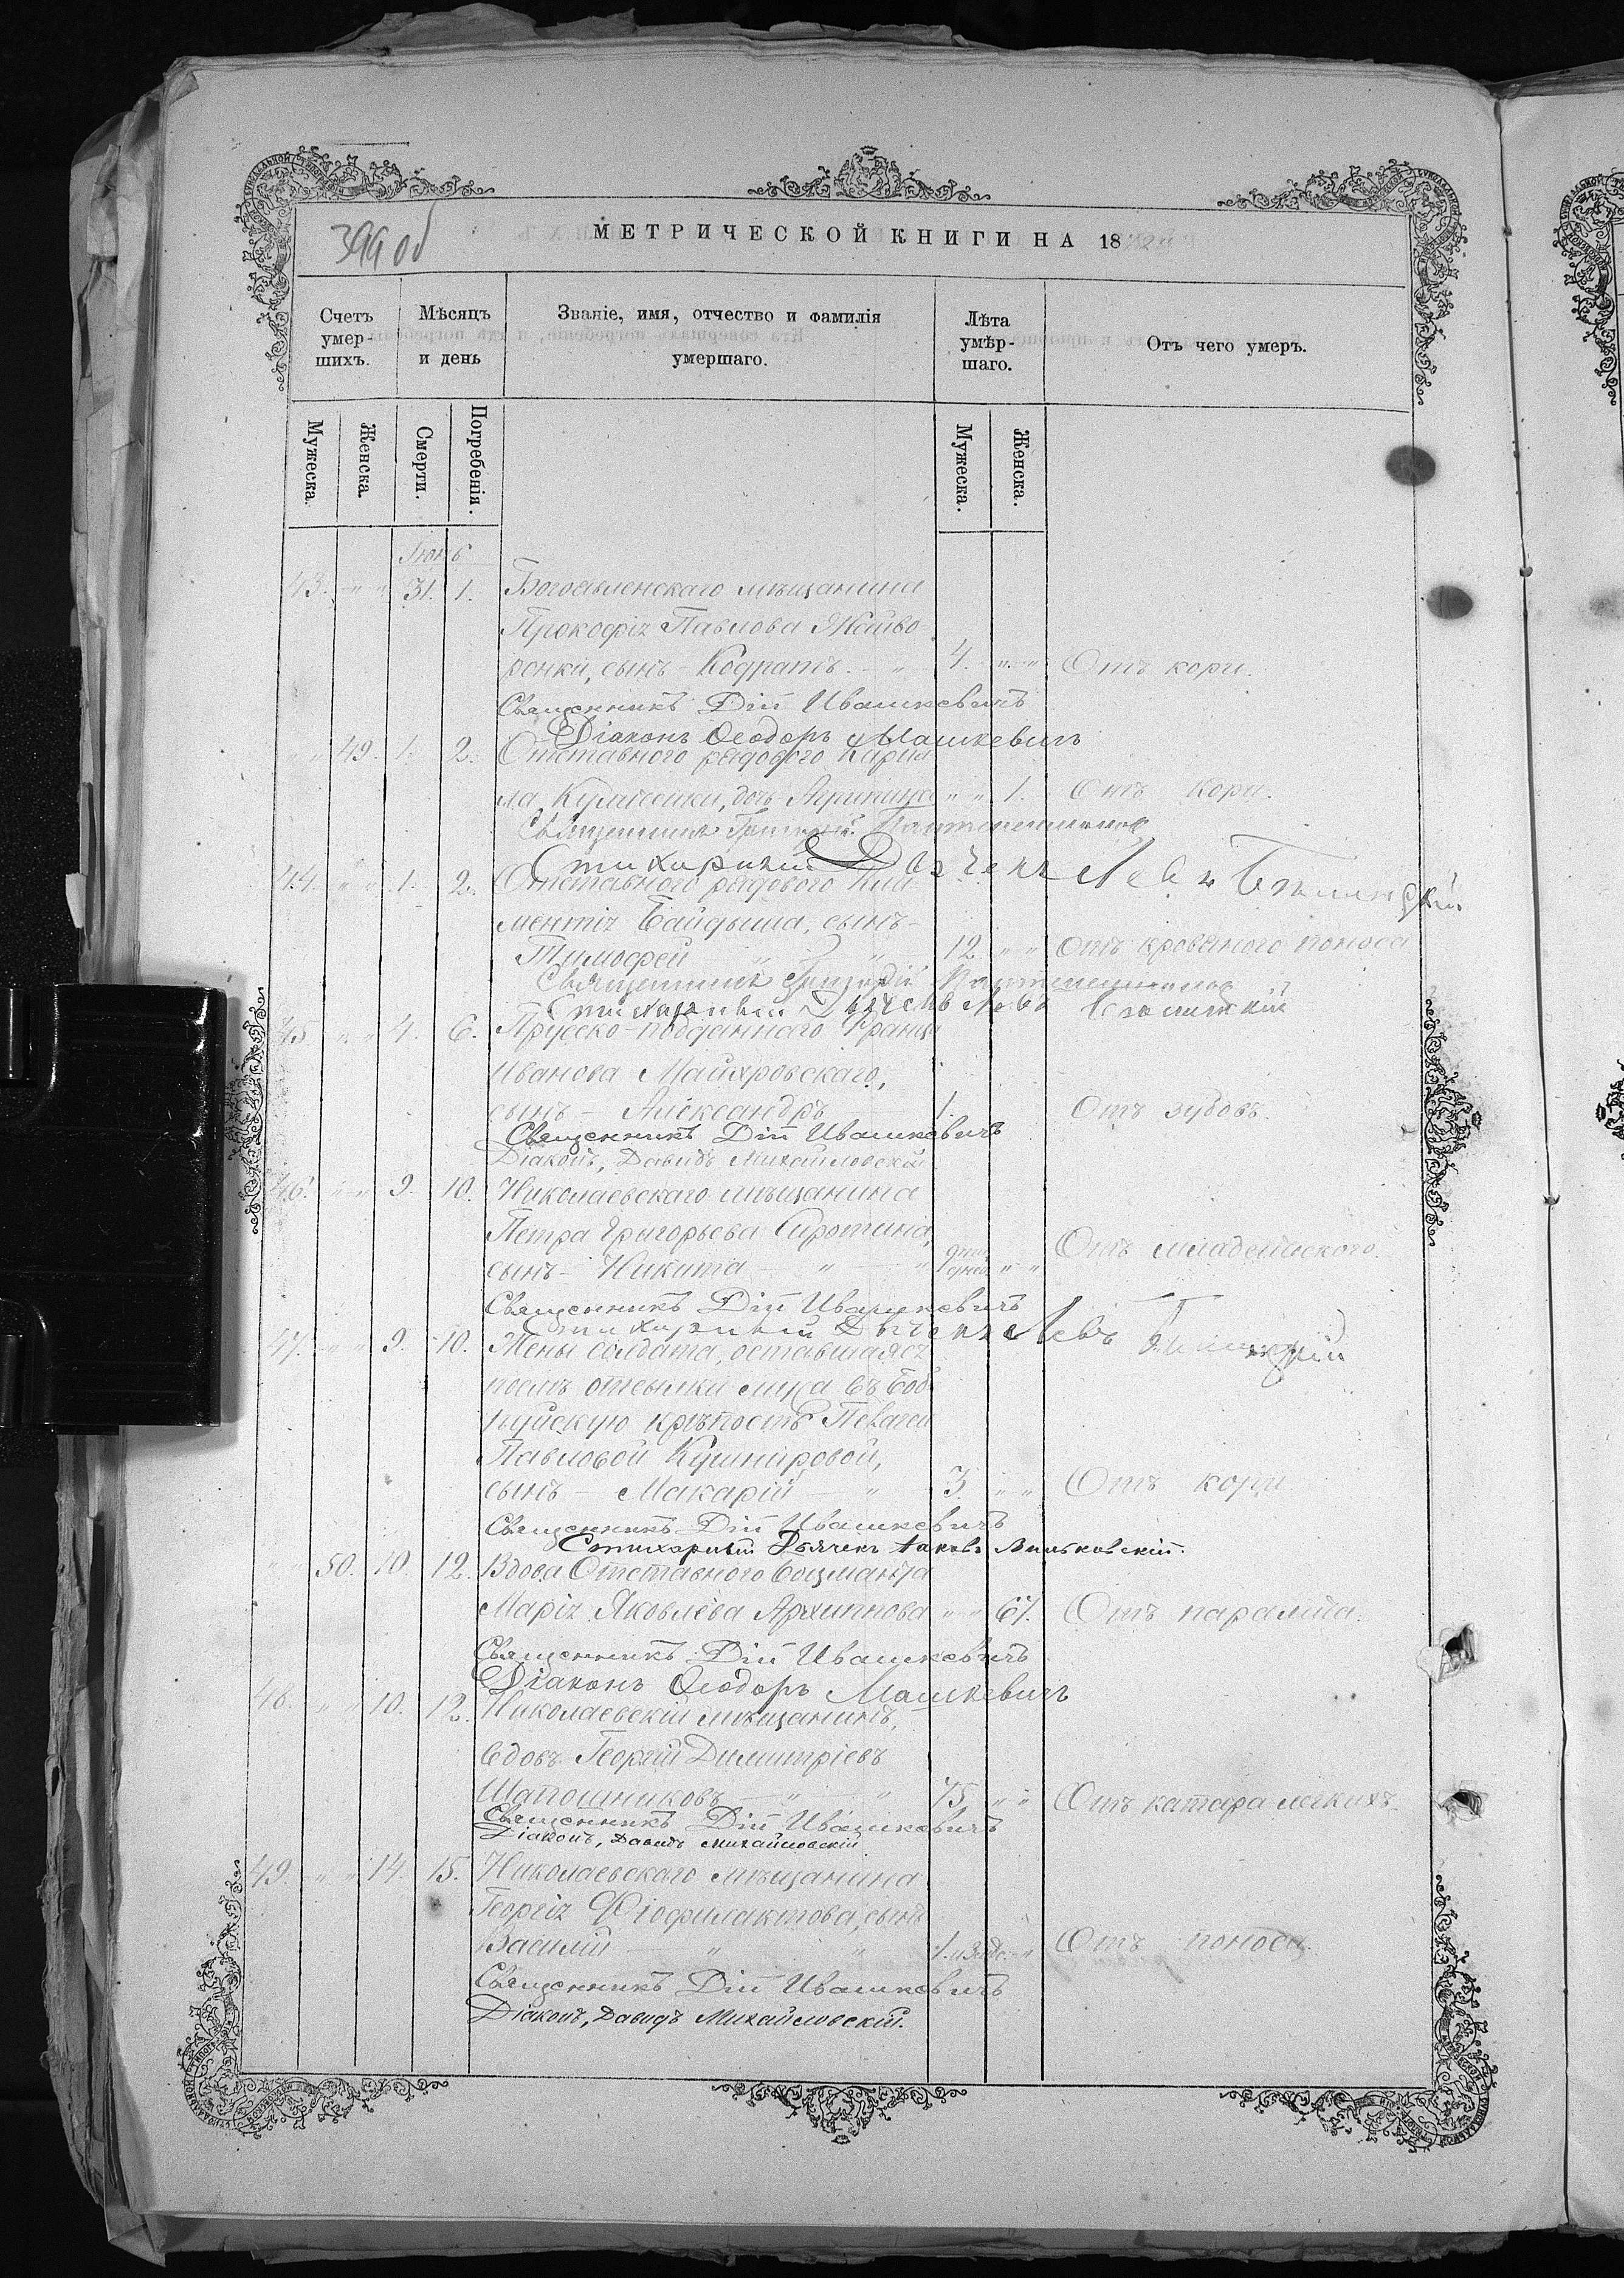 399 об
МЕТРИЧЕСКОЙ КНИГИ НА 187
Счетъ умер-шихъ.
Мѣсяцъ и день
Званіе, имя, отчество и фамилія умершаго.
Лѣта умѣр-шаго.
Отъ чего умеръ.
Мужеска.
Женска.
Смерти.
Погребенія.
Мужеска.
Женска.
Іюнь
43. " " 31. 1. Богоявленскаго мѣщанина
Прокофія Павлова Жайво
ронки, сынъ - Кодратъ. - " 4. " " Отъ кори.
Священникъ Дій Ивашкевичъ
Діаконъ Ѳеодоръ Машкевичъ
" " 49. 1. 2. Отставного рядового Кирил
ла дочь Агрипина " " 1. Отъ кори.
Священникъ Григорій
Стихарный Дьячекъ Левъ
44. " " 1. 2. Отставного рядового Кли-
ментія Байдыша, сынъ-
Тимофей " " 12. " " Отъ кроваваго поноса
Священникъ Григорій
Стихарный Дьячекъ Левъ
45. " " 4. 6. Прусско-подданнаго Франца
Иванова Майхровскаго,
сынъ - Александръ 1. Отъ зубовъ.
Священникъ Дій Ивашкевичъ
Діаконъ, Давидъ Михайловскій
46. " " 9. 10. Николаевскаго мѣщанина
Петра Григорьева Сиротина,
сынъ - Никита - " - " дней " " Отъ младенческого.
Священникъ Дій Ивашкевичъ
Стихарный Дьячекъ Левъ
47. " " 9. 10. Жены солдата, оставшаяся
послѣ отсылки мужа въ Боб
руйскую крѣпость Пелагеи
Павловой Кушнировой,
сынъ - Макарій - " 3. " " Отъ кори
Священникъ Дій Ивашкевичъ
Стихарный Дьячекъ Іаковъ Виньковскій.
" " 50. 10. 12. Вдова Отставного боцмана
Марія Яковлева Архипова " " 67. Отъ паралича.
Священникъ Дій Ивашкевичъ
Діаконъ Ѳеодоръ Машкевичъ
48. " " 10. 12. Николаевскій мѣщанинъ,
вдовъ Георгій Димитріевъ
Шапошниковъ " " 75. " " Отъ катара легкихъ.
Священникъ Дій Ивашкевичъ
Діаконъ, Давидъ Михайловскій
49. " " 14. 15. Николаевскаго мѣщанина
Георгія Фіофилактова, сынъ
Василій " " Отъ поноса.
Священникъ Дій Ивашкевичъ
Діаконъ, Давидъ Михайловскій.